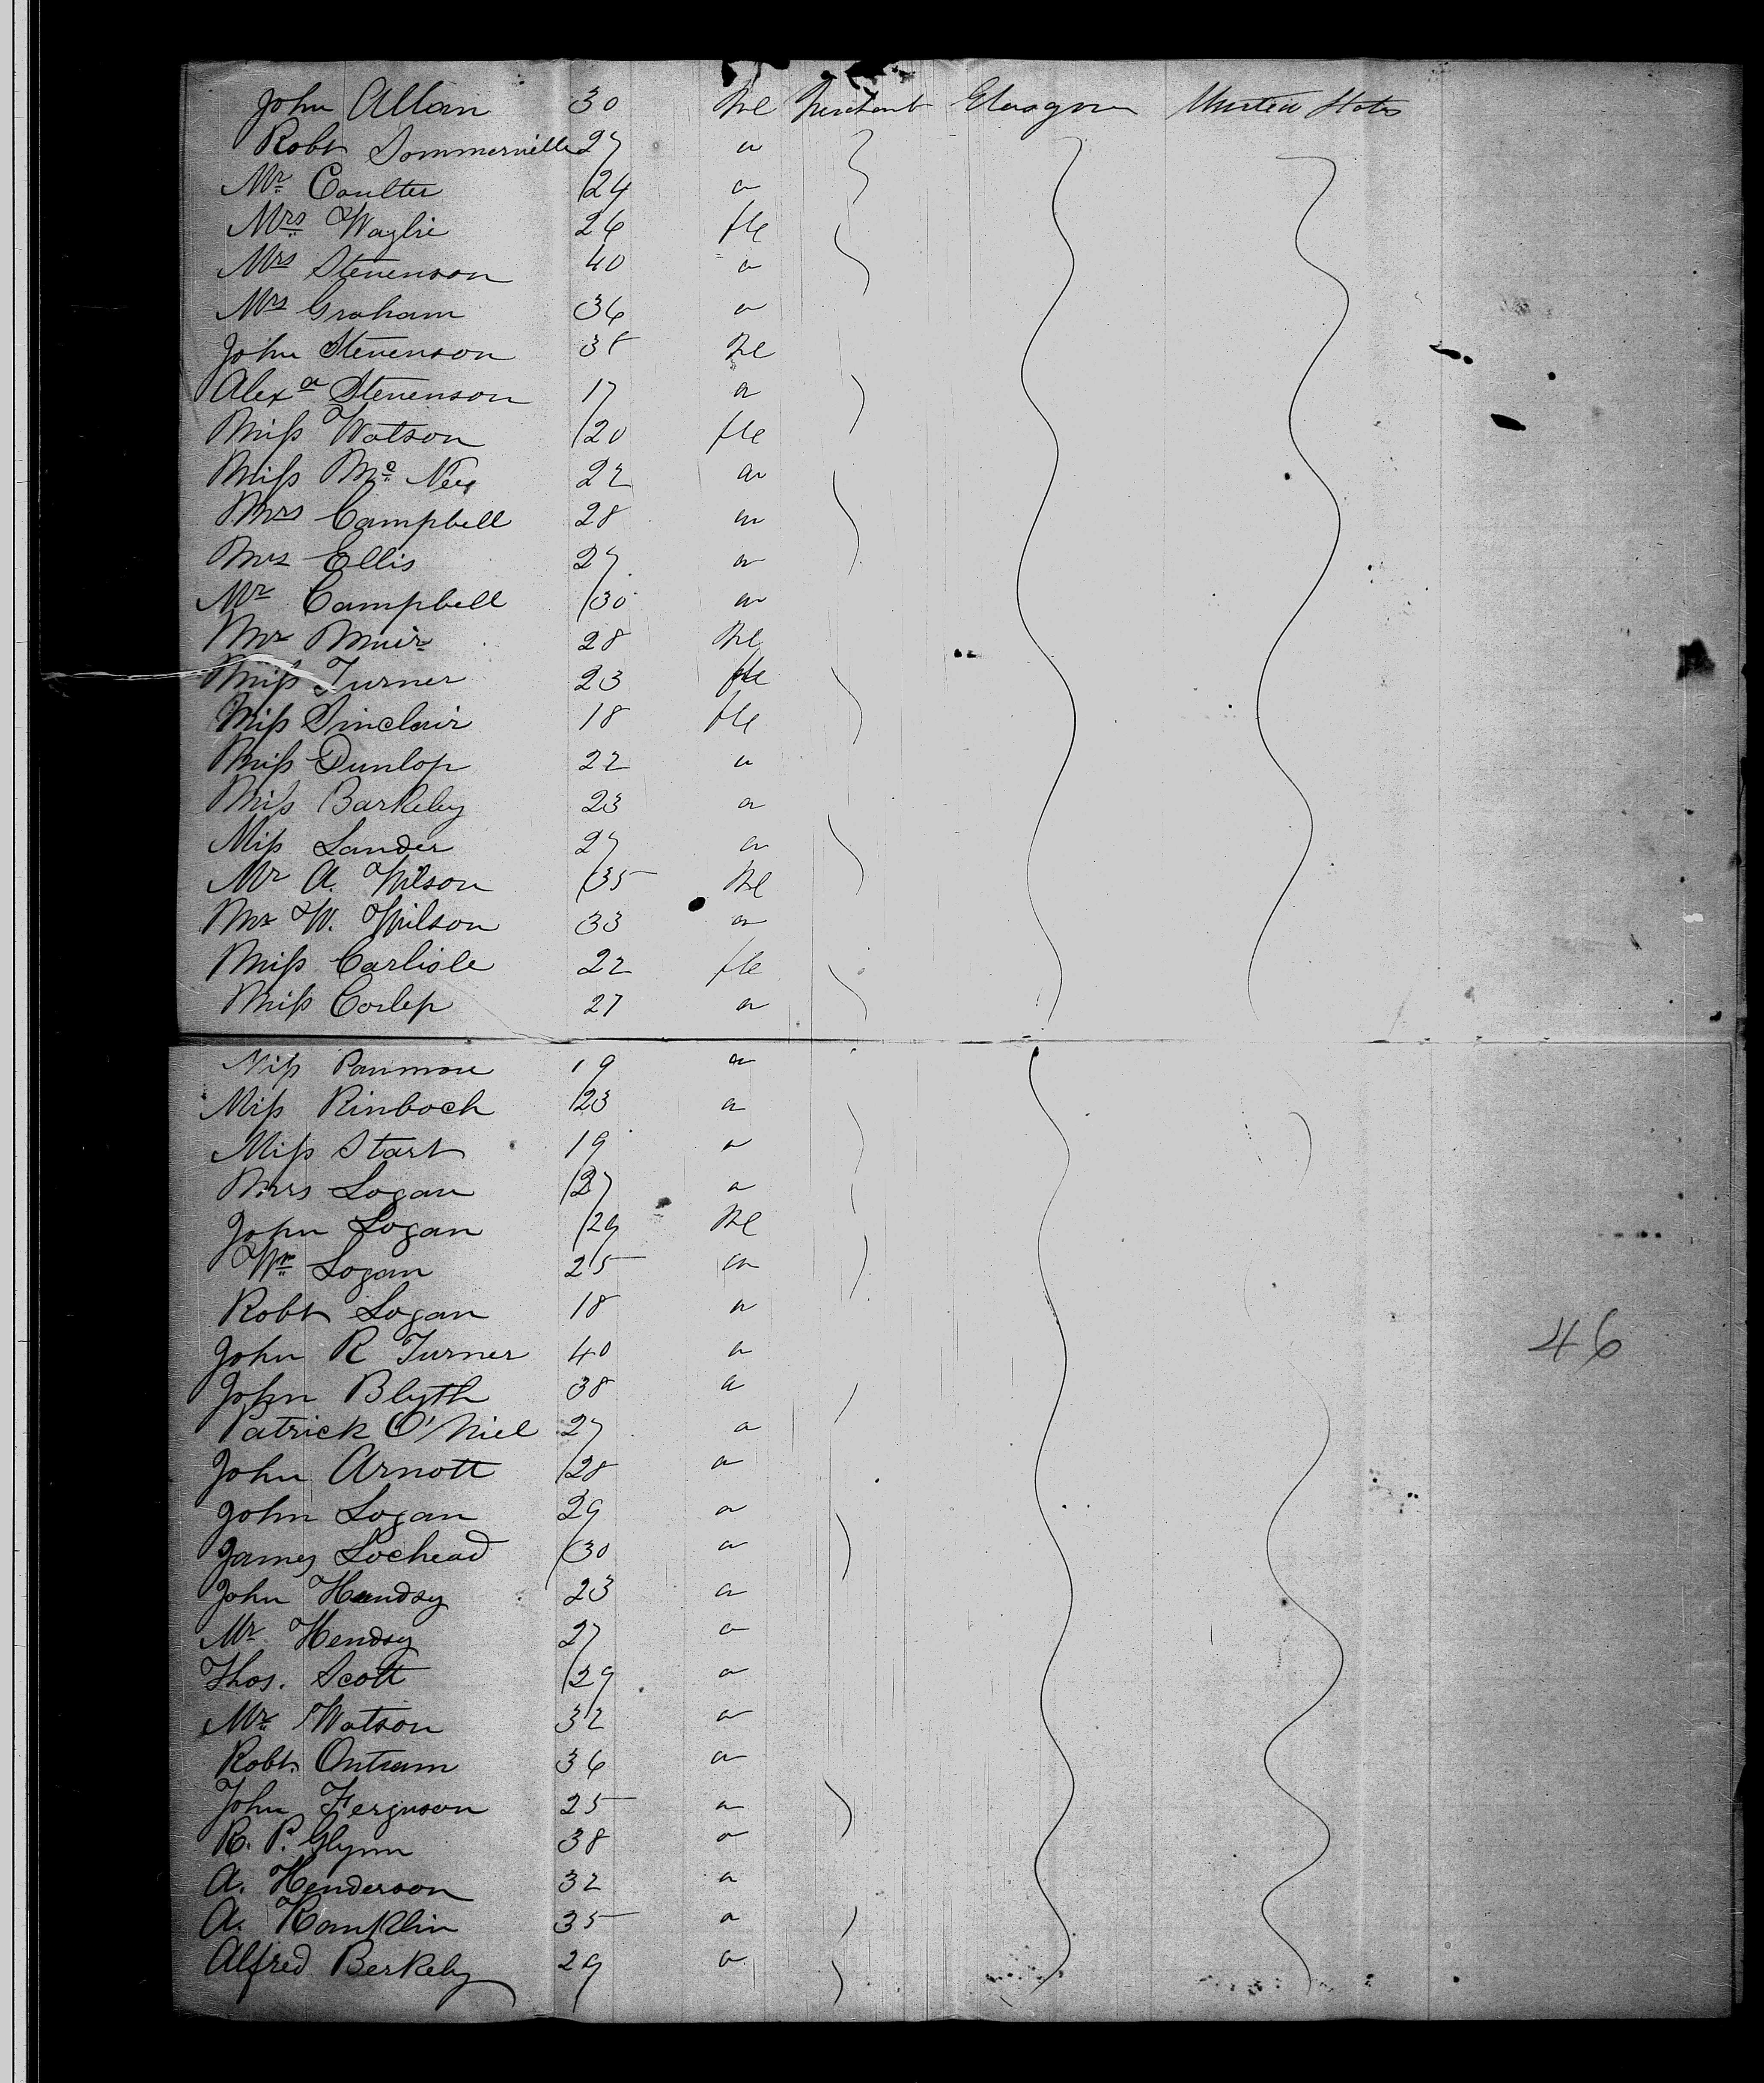 John Allan 30 Ml Merchant Glasgow United States
Robt Sommerville 27 "
Mr Coulter 24 "
Mrs 26 fle
Mrs Stevenson 40 "
Mrs Graham 36 "
John Stevenson 38 Ml
Alexa Stevenson 17 "
Miss Watson 20 fle
Miss Mc 22 "
Mrs Campbell 28 "
Mrs Ellis 27 "
Mr Campbell 30 "
Mr Muir 28 Ml
Miss Turner 23 fle
Miss Sinclair 18 fle
Miss Dunlop 22 "
Miss Barkeley 23 "
Miss Lander 27 "
Mr A. Wilson 35 Ml
Mr W. Wilson 33 "
Miss Carlisle 22 fle
Miss 27 "
Miss 19 "
Miss Rinboch 23 "
Miss Start 19 "
Mrs Logan 27 "
John Logan 29 Ml
Wm Logan 25 "
Robt Logan 18 "
John R Turner 40 "
John Blyth 38 "
Patrick O'Niel 27 "
John Arnott 28 "
John Logan 29 "
James Lochead 30 "
John 23 "
Mr 27 "
Thos. Scott 29 "
Mr Watson 32 "
Robt. Outram 36 "
John Ferguson 25 "
R. P. Glynn 38 "
A. Henderson 32 "
A. 35 "
Alfred Berkely 29 "
46